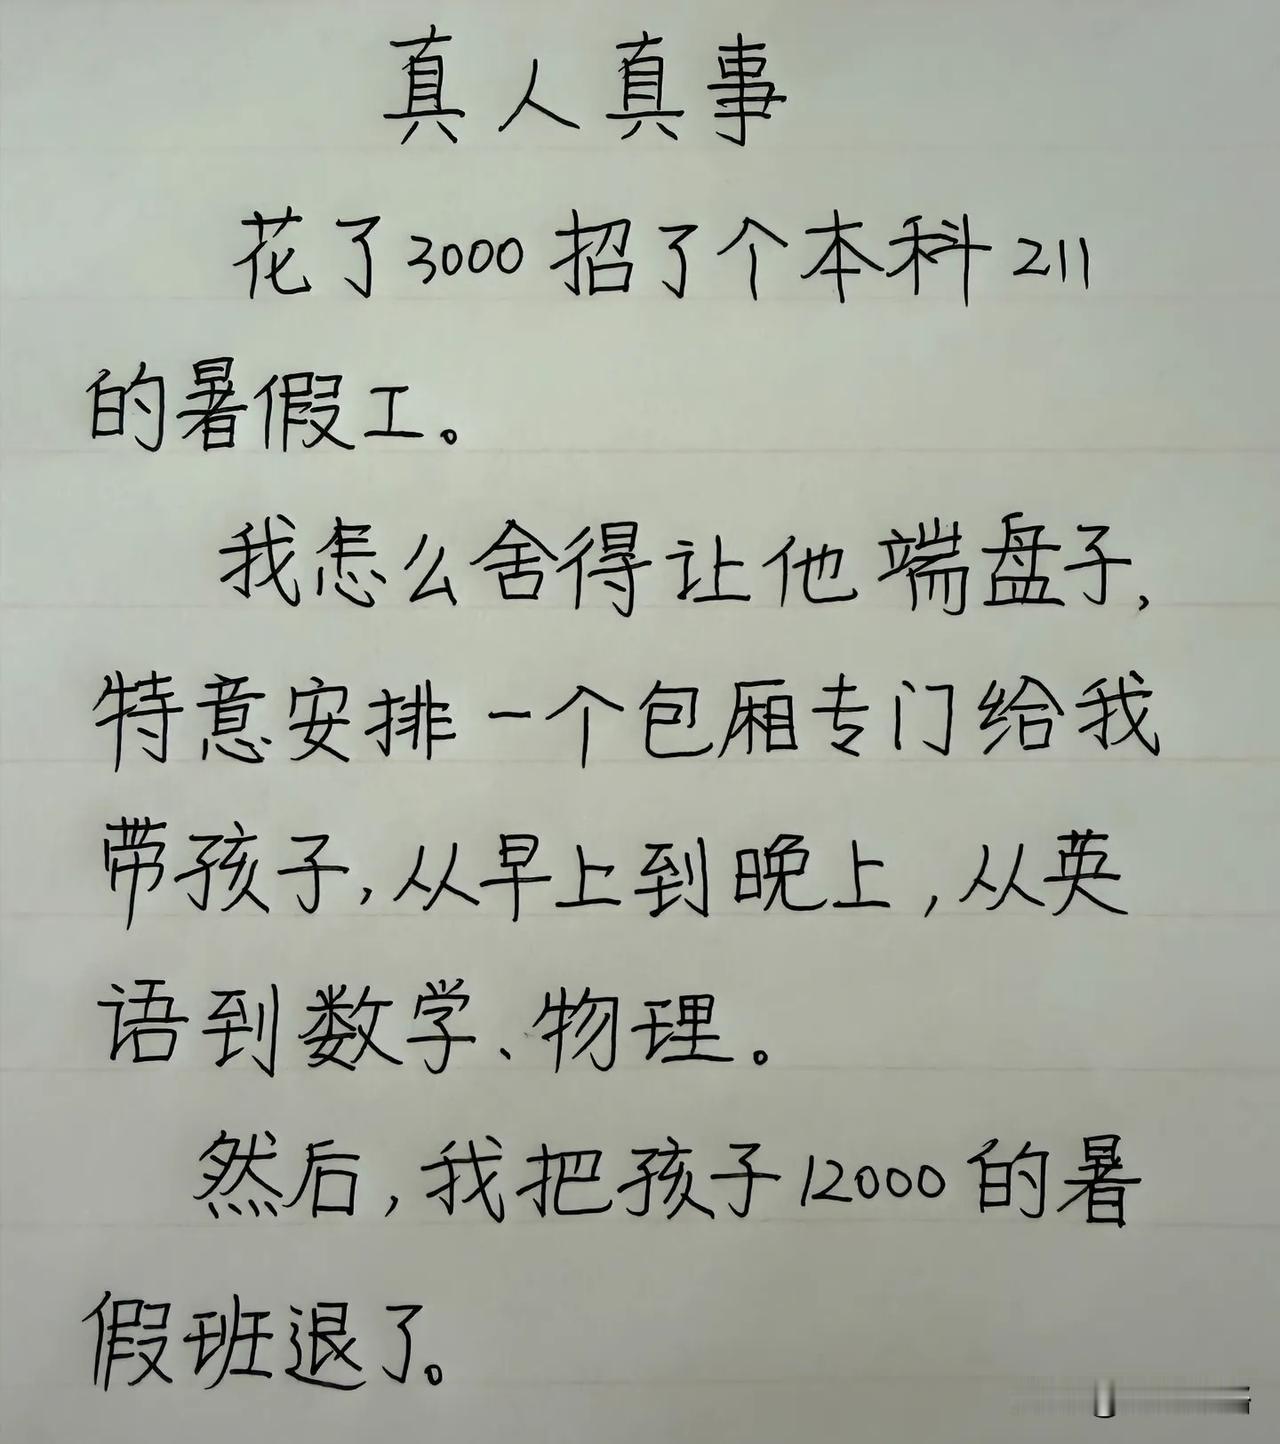 真人真事
花了3000招了个本科211
的暑假工。
我怎么舍得让他端盘子,
特意安排一个包厢专门给我
带孩子,从早上到晚上,从英
语到数学、物理。
然后,我把孩子12000的暑
假班退了。